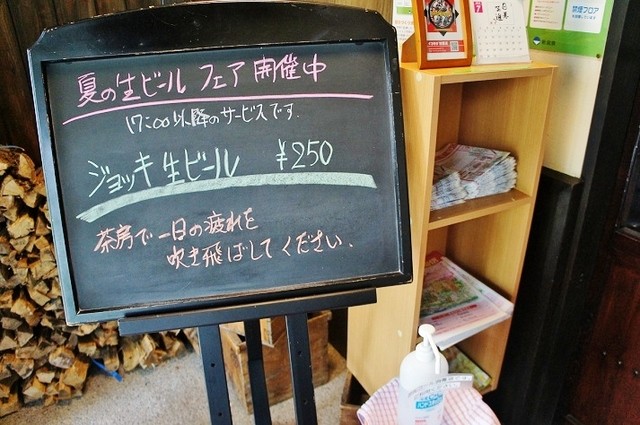 夏の生ビール フェア 開催中
17:00以降のサービスです.
ジョッキ生ビール ¥250
茶房で一日の疲れを
吹き飛ばしてください.
禁煙フロア